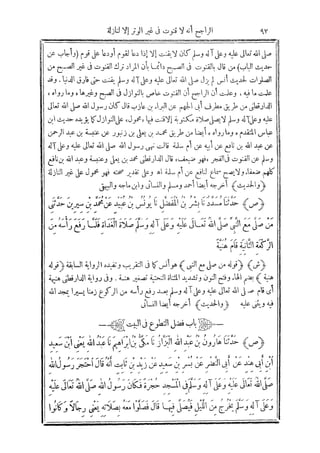 ٩٢ الراجح أنه لا قنوت فى غير الوتر إلا لنازلة
صلى الله تعالى عليه وعلى آله وسلم كان لايقنت إلا إذا دعا لقوم أودعا على قوم (وأجاب عن
حديث الباب) من قال بالقنوت فى الصبح دائما بأن المراد ترك القنوت فى غير الصبح من
الصلوات لحديث أنس لم يزل صلى الله تعالى عليه وعلى آله وسلم يقنت حتى فارق الدنيا. وقد
علمت ما فيه. وعلمت أن الراجح أن القنوت خاص بالنوازل فى الصبح وغيرها، وما رواه
الدارقطنى من طريق مطرف أبى الجهم عن البراء بن عازب قال كان رسول الله صلى الله تعالى
عليه وعلى آله وسلم لايصلى صلاة مكتوبة إلاقنت فيها، محمول على النوازل كما يؤيده حديث ابن
عباس المتقدم، وما رواه أيضا من طريق محمد بن يعلى بن زنبور عن عنبسة بن عبد الرحمن
عن عبد الله بن نافع عن أبيه عن أم سلمة قالت نهى رسول الله صلى الله تعالى عليه وعلى آله
وسلم عن القنوت فى الفجر، فهو ضعيف، قال الدارقطنى محمد بن يعلى وعنبسة وعبد الله بن نافع
كلهم ضعفاء ولايصح سماع لنافع عن أم سلمة اه وعلى تقدير صحته فهو محمول على غير النازلة
(والحديث) أخرجه أيضا أحمد ومسلم والنسائى وابن ماجه والبيهقى
(ص) حَدَّثَنَا مُسَدَّدٌ نَا بِشْرُ بْنُ الْمُفَضَّلِ نَا يُونُسُ بْنُ عُبَيْدٍ عَنْ مُحَمَّدِ بْنِ سِيرِينَ حَدَّثَنِى
مَنْ صَلَّى مَعَ النَّبِىِّ صَلَّى اللهُ تَعَالَى عَلَيْهِ وَعَلَى آلِهِ وَسَلَّمَ صَلَاةَ الْغَدَاةِ فَلَمَّا رَفَعَ رَأْسَهُ مِنَ
الرَّكْعَةِ الثَّانِيَةِ قَامَ هُنَيَّةً
(ش) (قوله من صلى مع النبى) هو أنس كما فى التقريب وتفيده الرواية السابقة (قوله
هنية) بضم الهاء وفتح النون وتشديد المثناة التحتية تصغير هنة. وفى رواية الدارقطنى هنيهة
أى قام صلى الله تعالى عليه وعلى آله وسلم بعد رفع رأسه من الركوع زمنا يسيرا يمجد الله
فيه ويثنى عليه (والحديث) أخرجه أيضا النسائى
باب فضل التطوع فى البيت
(ص) حَدَّثَنَا هَارُونُ بْنُ عَبْدِ اللهِ الْبَزَّازُ نَا مَكِّىُّ بْنُ إِبْرَاهِيمَ نَا عَبْدُ اللهِ يَعْنِى ابْنَ سَعِيدِ
ابْنِ أَبِى هِنْدٍ عَنْ أَبِى النَّضْرِ عَنْ بُسْرِ بْنِ سَعِيدٍ عَنْ زَيْدِ بْنِ ثَابِتٍ أَنَّهُ قَالَ احْتَجَرَ رَسُولُ اللهِ
صَلَّى اللهُ تَعَالَى عَلَيْهِ وَعَلَى آلِهِ وَسَلَّمَ فِى الْمَسْجِدِ حُجْرَةً فَكَانَ رَسُولُ اللهِ صَلَّى اللهُ تَعَالَى عَلَيْهِ
وَعَلَى آلِهِ وَسَلَّمَ يَخْرُجُ مِنَ اللَّيْلِ فَيُصَلِّى فِيهَا قَالَ فَصَلَّوْا مَعَهُ بِصَلَاتِهِ يَعْنِى رِجَالًا وَكَانُوا